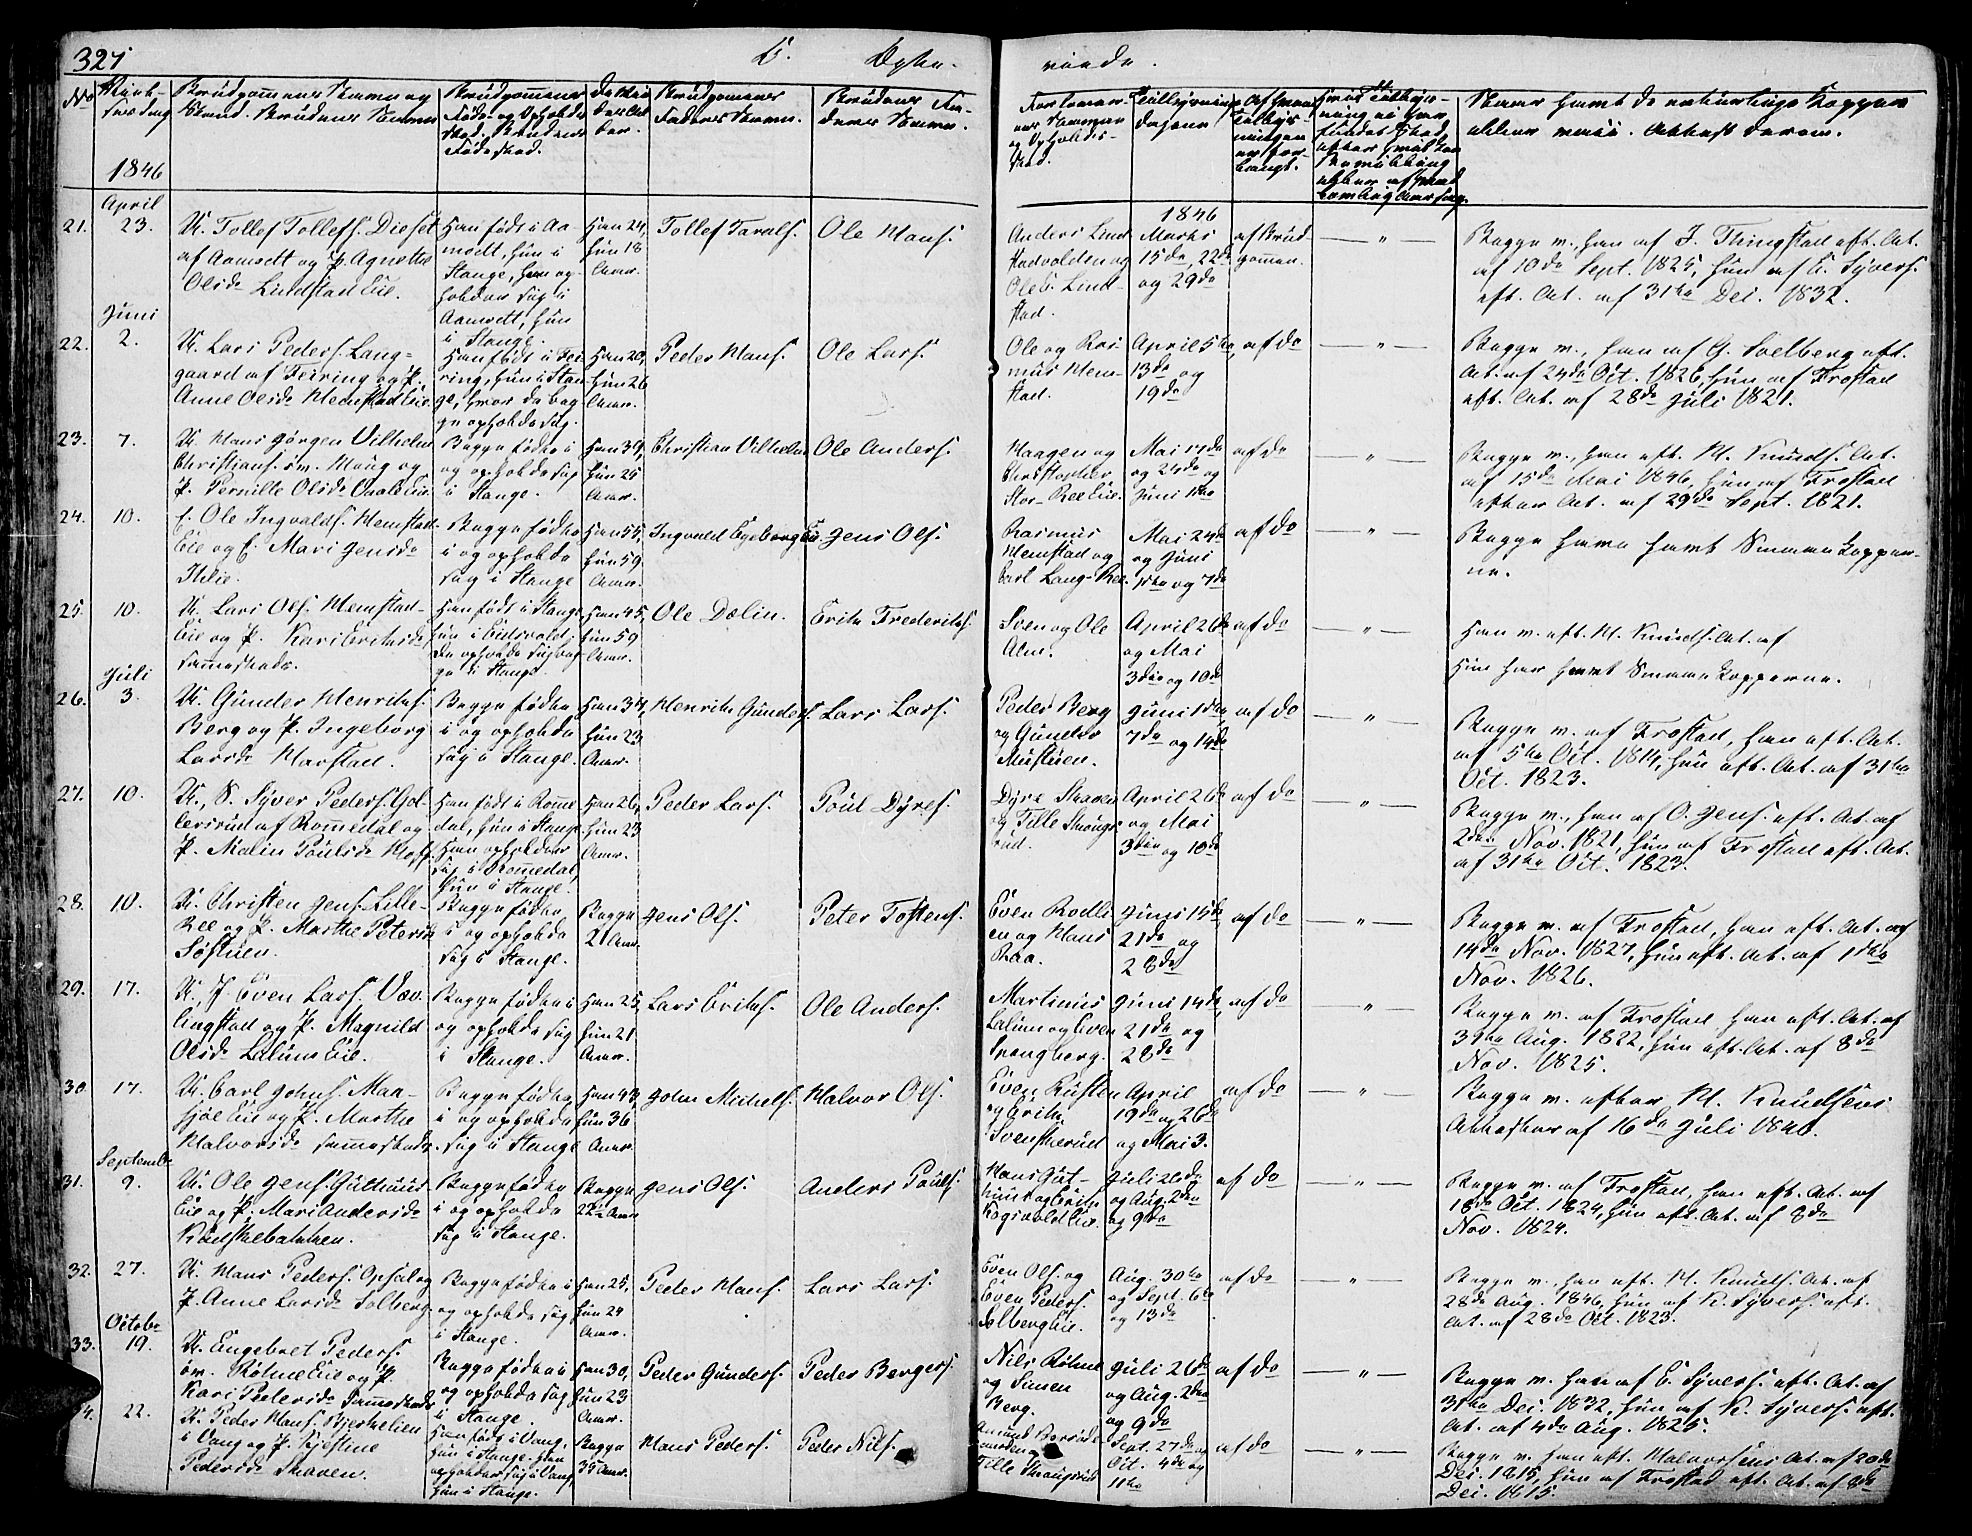 327
C.
Copu-
lerede.
No
Vielses-
dag
Brudgommens Navn og
Stand. Brudens Navn
Brudgommens
Føde- og Opholds-
sted. Brudens
Fødested.
Brudgommens
Faders Navn.
Brudens Fa-
ders Navn.
Forlover-
nes Navne
og Opholds-
sted.
Tillysnings-
dagene
Naar havt de naturlige Kopper
eller vacc. Attest derom.
1846
April
1846
21.
23.
U. Tollef Tollefs. Dieset
af Aamodt og P. Agnethe
Olsdr Lindstad Eie.
Han født i Aa-
modt, hun i
Stange, han op-
holder sig i
Aamodt, hun
i Stange.
Han 24,
hun 18
Aar.
Tollef Tarals.
Ole Hans.
Anders Lind-
stadvolden og
Ole E. Lind-
stad.
Marts
15de, 22de
og 29de
af Brud-
gommen.
— " —
Begge v., han af J. Thingstad eft. At.
af 10de Sept. 1825, hun af E. Syvers.
eft. At. af 31te Dec. 1832.
Juni
22.
2.
U. Lars Peders. Lang-
gaard af Feiring og P.
Anne Olsdr Hemstad Eie.
Han født i Fei-
ring, hun i Stan-
ge, hvor de beg-
ge opholde sig.
Han 20,
hun 26
Aar.
Peder Hans.
Ole Lars.
Ole og Ras-
mus Hem-
stad.
April 5te,
13de og
19de
af do
— " —
Begge v., han af G. Soelberg eft.
At. af 24de Oct. 1826, hun af Frostad
eft. At. af 28de Juli 1821.
23.
7.
U. Hans Jørgen Vilhelm
Christians. im. Houg og
P. Pernille Olsdr Vaale Eie.
Begge fødte i
og opholde sig
i Stange.
Christian Vilhelm
Ole Anders.
Haagen og
Christopher
Stor-Ree Eie.
Mai 17de
og 24de og
Juni 1ste
af do
— " —
Begge v., han eft. M. Knuds. At.
af 15de Mai 1846, hun af Frostad
efter At. af 29de Sept. 1821.
24.
10.
E. Ole Ingvalds. Hemstad
Eie og E. Mari Jensdr
Ihlie.
Begge fødte
i og opholde
sig i Stange
Han 55,
hun 59
Aar.
Ingvald Egeberg Eie
Jens Ols.
Rasmus
Hemstad og
Carl Lang-Ree.
Mai 24de
og Juni
1ste og 7de
af do
— " —
Begge have havt Smaakopper-
ne.
25.
10.
U. Lars Ols. Hemstad-
Eie og P. Kari Eriksdr
sammesteds.
Han født i Stange,
hun i Eidsvold,
de opholde sig beg-
ge i Stange.
Han 45,
hun 59
Aar.
Ole Dælin.
Erik Frederiks.
Sven og Ole
Alm.
April 26de
og Mai
3die og 10de
af do
— " —
Han v. eft. M. Knuds. At. af
Hun har havt Smaakopperne.
Juli
26.
3.
U. Gunder Henriks.
Berg og P. Ingeborg
Larsdr Harstad.
Begge fødte
i og opholde
sig i Stange.
Han 34,
hun 23
Aar.
Henrik Gunders.
Lars Lars.
Peder Berg
og Gunder
Mustuen.
Juni 1ste,
7de og 14de
af do
— " —
Begge v. af Frostad, han eft. At.
af 5te Oct. 1814, hun eft. At. af 31te
Oct. 1823.
27.
10.
U., S. Syver Peders. Gol-
lersrud af Romedal og
P. Malin Poulsdr Hoff.
Han født i Rome-
dal, hun i Stange
Han opholder
sig i Romedal,
hun i Stange.
Han 26,
hun 23
Aar.
Peder Lars.
Poul Dyres.
Dyre Skaven
og Tille Skougs-
rud.
April 26de
og Mai
3die og 10de
af do
— " —
Begge v., han af O. Jens. eft. At. af
2den Nov. 1821, hun af Frostad eft. At.
af 31te Oct. 1823.
28.
10.
U. Christen Jens. Lille-
Ree og P. Marthe Petersdr
Søstuen.
Begge fødte
i og opholde
sig i Stange.
Begge
21 Aar.
Jens Ols.
Peter Tostens.
Even Rodli-
en og Hans
Raa.
Juni 15de
21de og
28de
af do
— " —
Begge v. af Frostad, han eft. At. af
14de Nov. 1827, hun eft. At. af 1ste
Nov. 1826.
29.
17.
U., J. Even Lars. Væv-
lingstad og P. Magnild
Olsdr Lalum Eie.
Begge fødte i
og opholde sig
i Stange.
Han 25,
hun 21
Aar.
Lars Eriks.
Ole Anders.
Martinus
Lalum og Even
Spangberg.
Juni 14de,
21de og
28de
af do
— " —
Begge v. af Frostad han eft. At. af
31te Aug. 1822, hun eft. At. af 8de
Nov. 1825.
30.
17.
U. Carl Johns. Man-
sjøe Eie og P. Marthe
Halvorsdr sammesteds.
Begge fødte
i og opholde
sig i Stange
Han 43,
hun 36
Aar.
John Michels.
Halvor Ols.
Even Rusten
og Erik
Svenskerud
April
19de og 26de
og Mai 3.
af do
— " —
Begge v. efter M. Knudsens
Attester af 16de Juli 1846.
Septembr
31.
9.
U. Ole Jens. Guthuus-
Eie og P. Mari Andersdr
Kudskebakken.
Begge fødte
i og opholde
sig i Stange.
Begge
22 Aar
Jens Ols.
Anders Pouls.
Hans Gut-
huus og Erik
Rogsvold Eie.
Juli 26de
og Aug. 2den
og 9de
af do
— " —
Begge v. af Frostad, han eft. At. af
18de Oct. 1824, hun eft. At. af 8de
Nov. 1824.
32.
27.
U. Hans Peders. Opsal og
P. Anne Larsdr Solberg.
Begge fødte i
og opholde sig
i Stange.
Han 25,
hun 24
Aar.
Peder Hans.
Lars Lars.
Even Ols. og
Even Peders.
Solberg Eie.
Aug. 30te
og Sept. 6te
og 13de
af do
— " —
Begge v., han eft. M. Knuds. At. af
28de Aug. 1846, hun af K. Syvers. eft.
At. af 28de Oct. 1823.
Octobr
33.
19.
U. Engebret Peders.
im. Røhne Eie og P.
Kari Pedersdr sammesteds
Begge fødte i
og opholde sig
i Stange.
Han 30,
hun 23
Aar.
Peder Gunders.
Peder Bergers.
Nils Røhne
og Simen
Berg.
Juli 26de
og Aug. 2den
og 9de
af do
— " —
Begge v. han af E. Syvers. eft. At. af
31te Dec. 1832, hun af K. Syvers. eft.
At. af 4de Aug. 1825.
34.
22.
U. Peder Hans. Bjerkelien
i Vang og P. Kjestine
Pedersdr Skaven.
Han født i Vang,
hun i Stange. Han
opholder sig i Vang,
hun i Stange.
Begge
35 Aar.
Hans Peders.
Peder Nils.
Tille Skougsrud
Sept. 27de og
Oct. 4de og
11te
af do
— " —
Begge v. han eft. Halvorsens At. af 20de
Dec. 1815, hun af Frostad eft. At. af 8de
Dec. 1815.